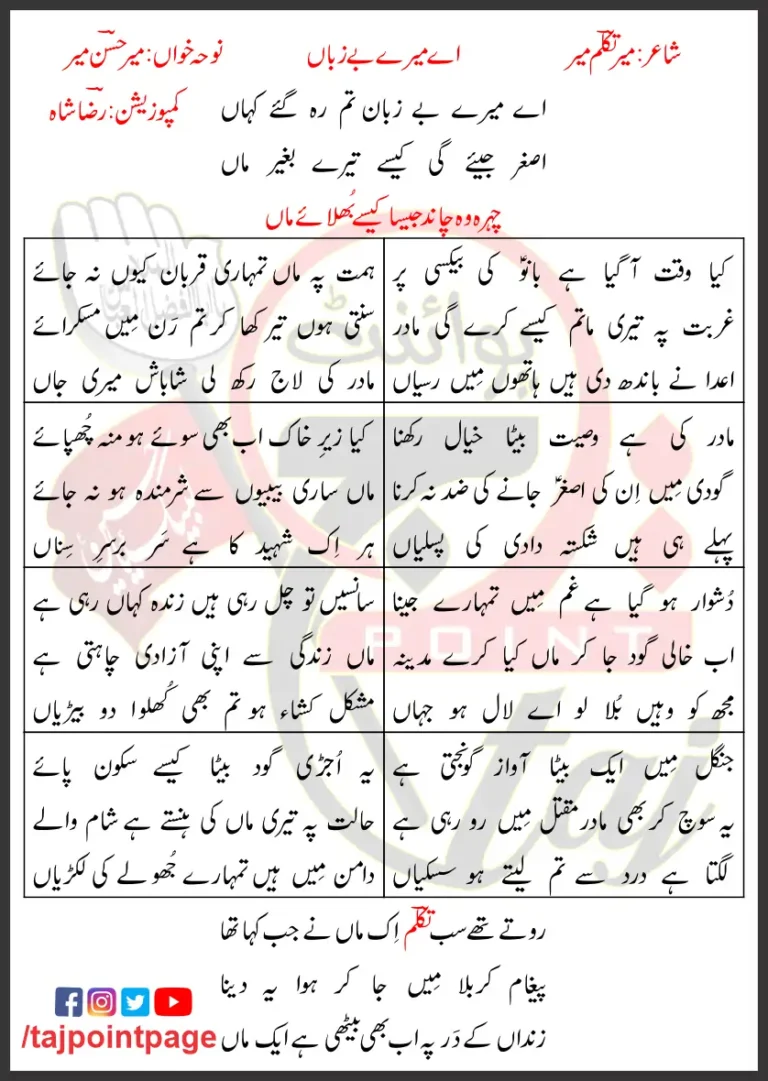 شاعر: میر تکلّم میر
اے میرے بے زباں
نوحہ خواں: میر حسن میر
اے میرے بے زبان تم رہ گئے کہاں
کمپوزیشن: رضا شاہ
اصغر جیئے گی کیسے تیرے بغیر ماں
چہرہ وہ چاند جیسا کیسے بُھلائے ماں
کیا وقت آ گیا ہے بانوؑ کی بیکسی پر
غربت پہ تیری ماتم کیسے کرے گی مادر
اعدا نے باندھ دی ہیں ہاتھوں مِیں رسیاں
ہمت پہ ماں تمہاری قربان کیوں نہ جائے
سنتی ہوں تیر کھا کر تم رَن مِیں مسکرائے
مادر کی لاج رکھ لی شاباش میری جاں
مادر کی ہے وصیت بیٹا خیال رکھنا
گودی مِیں اِن کی اصغرؑ جانے کی ضد نہ کرنا
پہلے ہی ہیں شکستہ دادی کی پسلیاں
کیا زیرِ خاک اب بھی سوئے ہو منہ چُھپائے
ماں ساری بیبیوں سے شرمندہ ہو نہ جائے
ہر اِک شہید کا ہے سَر برسرِ سِناں
دُشوار ہو گیا ہے غم مِیں تمہارے جینا
اب خالی گود جا کر ماں کیا کرے مدینہ
مجھ کو وہیں بُلا لو اے لال ہو جہاں
سانسیں تو چل رہی ہیں زندہ کہاں رہی ہے
ماں زندگی سے اپنی آزادی چاہتی ہے
مشکل کشاء ہو تم بھی کُھلوا دو بیڑیاں
جنگل مِیں ایک بیٹا آواز گونجتی ہے
یہ سوچ کر بھی مادر مقتل مِیں رو رہی ہے
لگتا ہے درد سے تم لیتے ہو سسکیاں
یہ اُجڑی گود بیٹا کیسے سکون پائے
حالت پہ تیری ماں کی ہنستے ہے شام والے
دامن مِیں ہیں تمہارے جُھولے کی لکڑیاں
روتے تھے سب تکلّم اِک ماں نے جب کہا تھا
پیغام کربلا مِیں جا کر ہوا یہ دینا
زنداں کے دَر پہ اب بھی بیٹھی ہے ایک ماں
/tajpointpage
پوائنٹ
POINT
taj